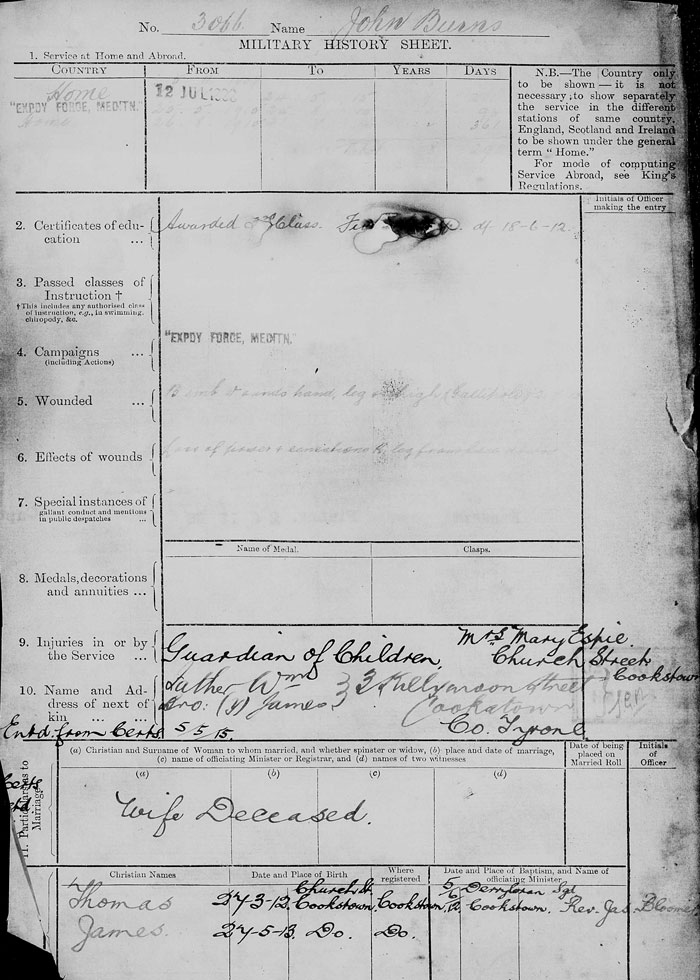 No. 3066 Name John Burns
MILITARY HISTORY SHEET.
1. Service at Home and Abroad.
COUNTRY FROM TO YEARS DAYS
Home
"EXPDY FORCE, MEDITN."
12 JUL
N.B.—The Country only
to be shown—it is not
necessary to show separately
the service in the different
stations of same country.
England, Scotland and Ireland
to be shown under the general
term "Home."
For mode of computing
Service Abroad, see King's
Regulations.
Initials of Officer
making the entry
2. Certificates of edu-
cation ...
Awarded Class. of 15-6-12.
3. Passed classes of
Instruction †
† This includes any authorised class
of instruction, e.g., in swimming,
chiropody, &c.
"EXPDY FORCE, MEDITN."
4. Campaigns ...
(including Actions)
5. Wounded ...
hand, leg
6. Effects of wounds
leg
7. Special instances of
gallant conduct and mentions
in public despatches ...
Name of Medal. Clasps.
8. Medals, decorations
and annuities ...
9. Injuries in or by
the Service ...
Guardian of Children, Mrs Mary Espie
Church Street
Cookstown
10. Name and Ad-
dress of next of
kin ... ...
Father Wm 3 Killymoon Street
Bro: (y) James Cookstown
Co. Tyrone
Entd: from Certs 5/5/15.
11. Particulars as to
Marriage
(a) Christian and Surname of Woman to whom married, and whether spinster or widow, (b) place and date of marriage,
(c) name of officiating Minister or Registrar, and (d) names of two witnesses
Date of being
placed on
Married Roll
Initials
of
Officer
(a) (b) (c) (d)
Certs
Wife Deceased.
Christian Names Date and Place of Birth Where
registered Date and Place of Baptism, and Name of
officiating Minister
Thomas 27-3-12. Church St. Cookstown, Cookstown, 5/6/12. Derryloran Cookstown. Rev. Jas Bloomer
James. 27-5-13. Do. Do.